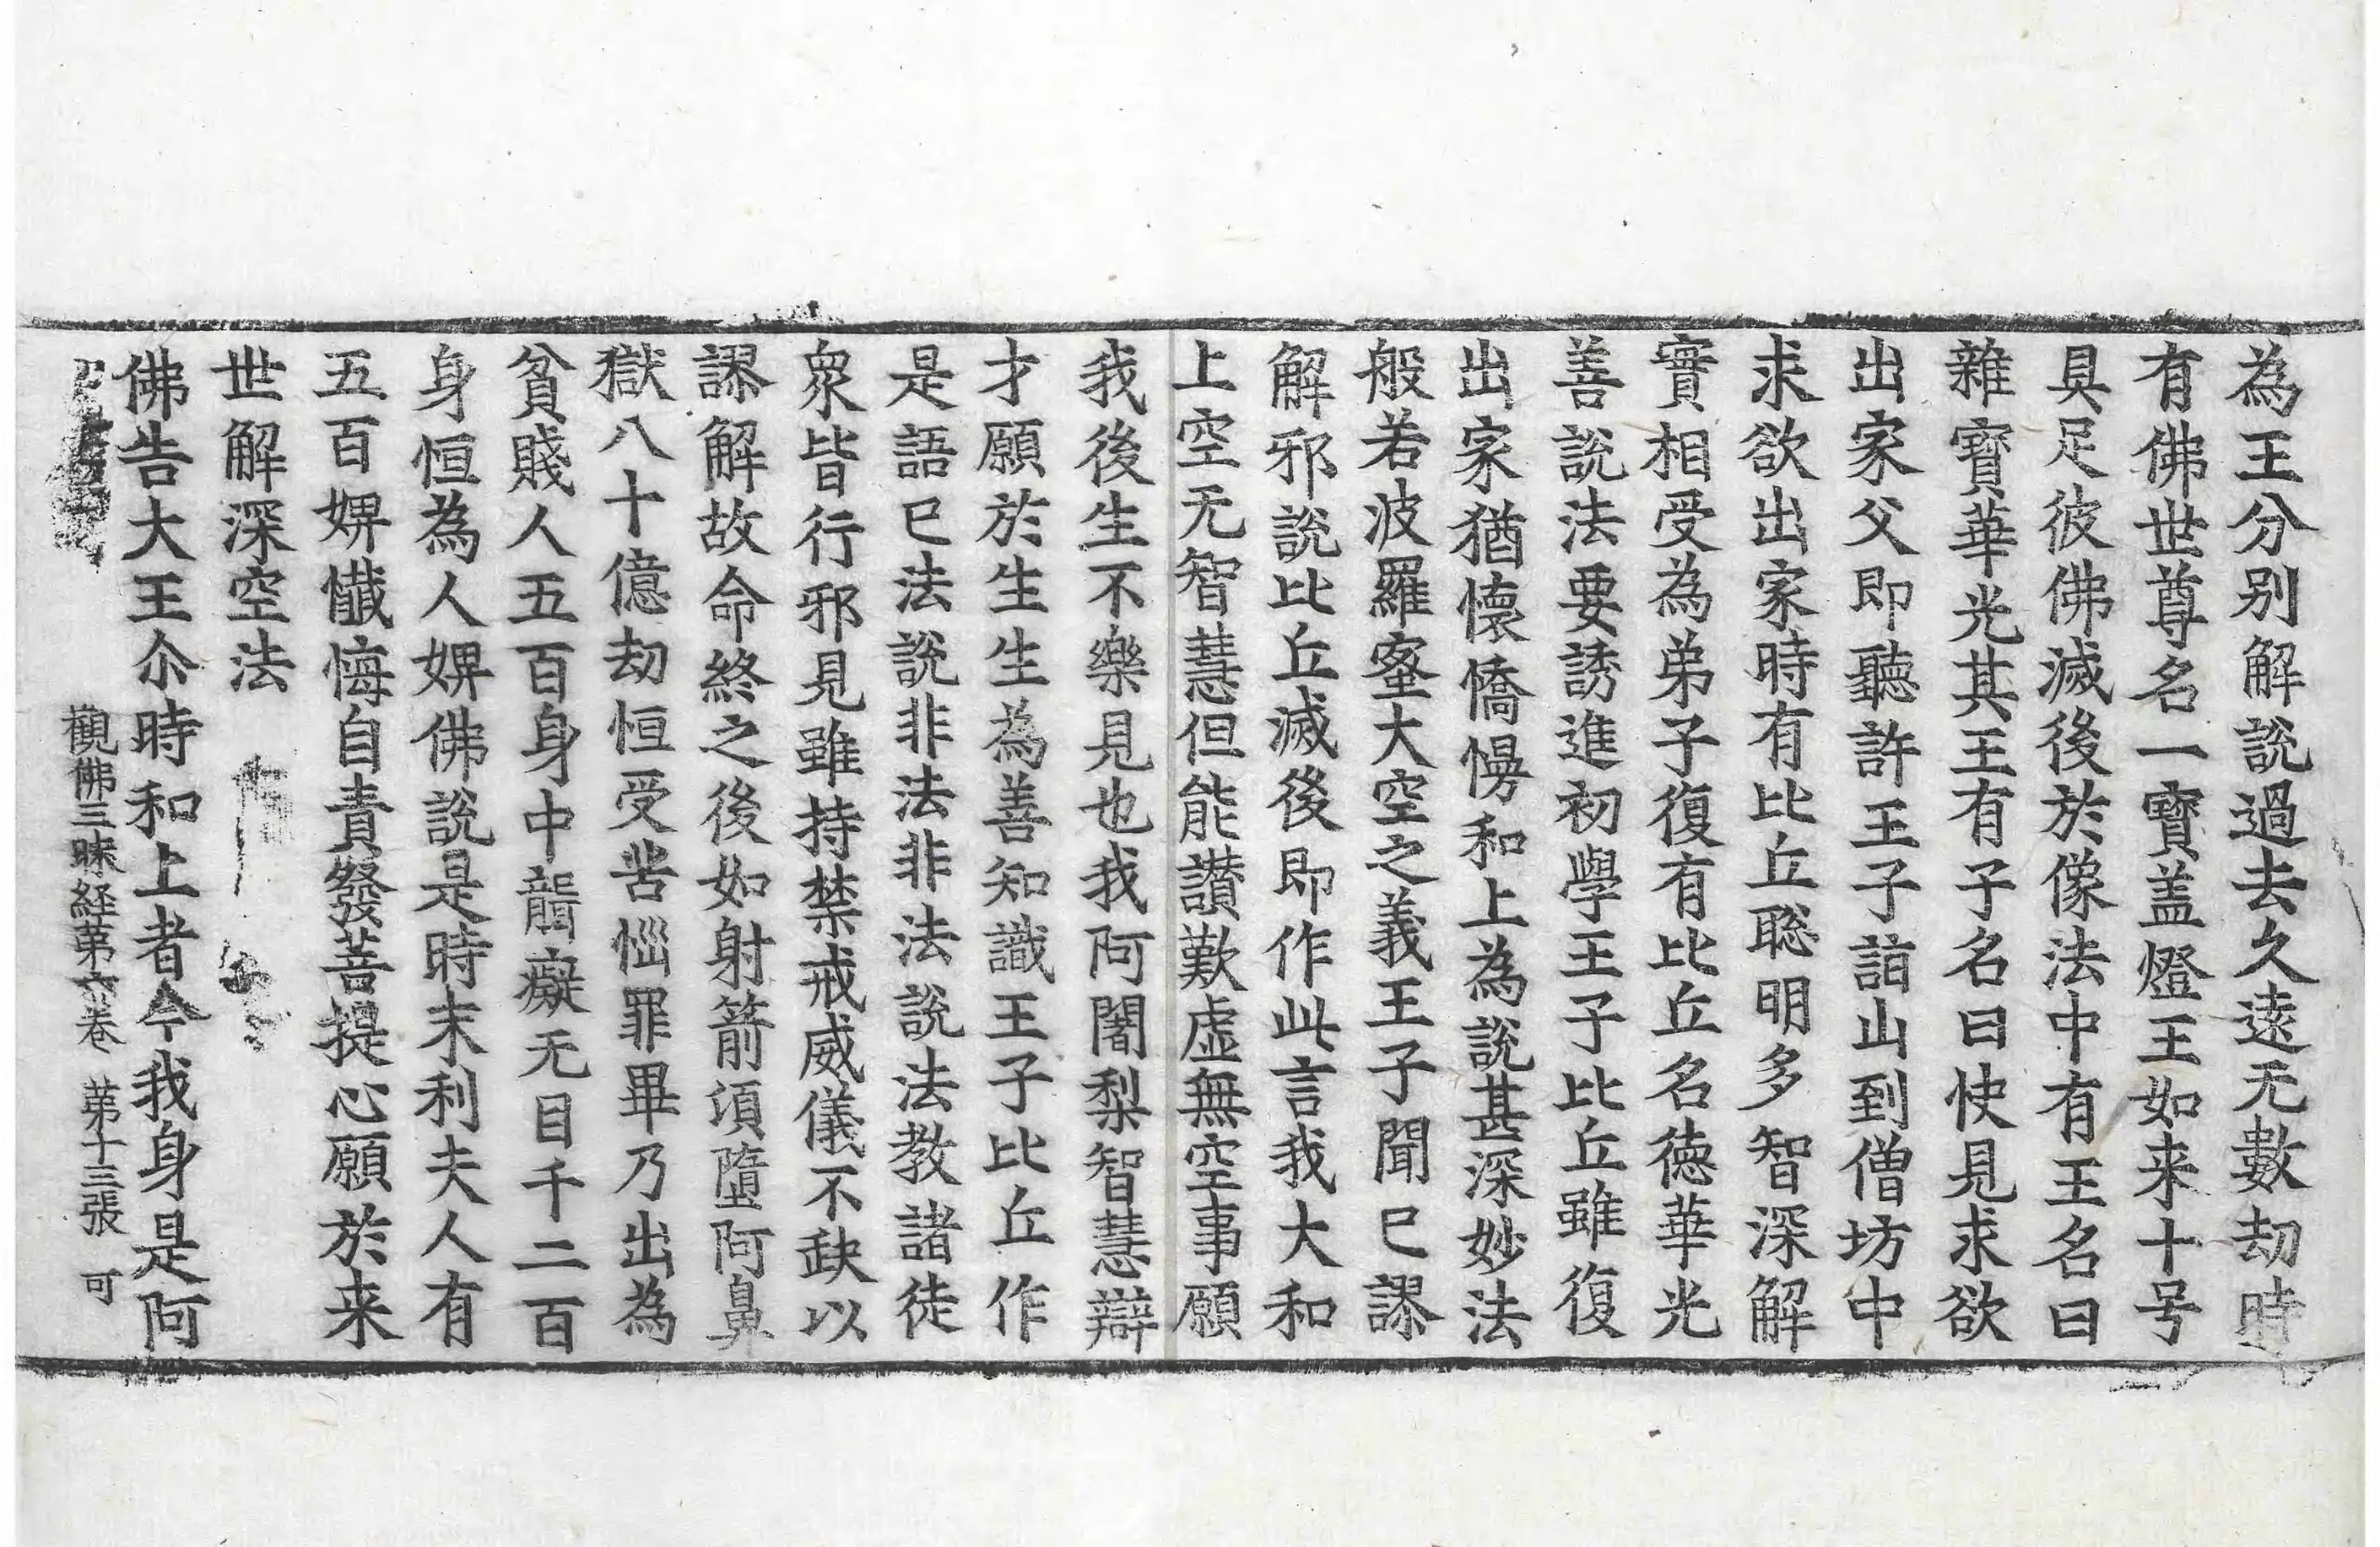 為王分別解說過去久遠无數劫時
有佛世尊名一寶盖燈王如来十号
具足彼佛滅後於像法中有王名曰
雜寶華光其王有子名曰快見求欲
出家父即聽許王子詣山到僧坊中
求欲出家時有比丘聡明多智深解
實相受為弟子復有比丘名徳華光
善說法要誘進初學王子比丘雖復
出家猶懷憍慢和上為說甚深妙法
般若波羅蜜大空之義王子聞已謬
解邪說比丘滅後即作此言我大和
上空无智慧但能讃歎虛無空事願
我後生不樂見也我阿闍梨智慧辯
才願於生生為善知識王子比丘作
是語已法說非法非法說法教諸徒
衆皆行邪見雖持禁戒威儀不缺以
謬解故命終之後如射箭頃墮阿鼻
獄八十億劫恒受苦惱罪畢乃出為
貧賤人五百身中聾癡无目千二百
身恒為人婢佛說是時末利夫人有
五百婢懺悔自責發菩提心願於来
世解深空法
佛告大王尒時和上者今我身是阿
觀佛三昧経苐六卷 苐十三張 可